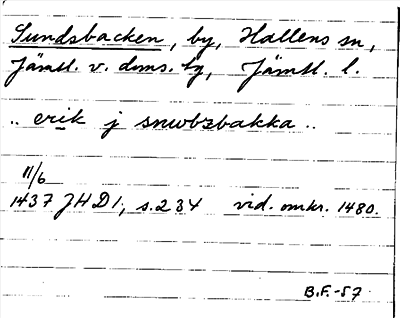 Sundsbacken, by, Hallens sn,
Jämtl. v. doms. hg, Jämtl. l.
.. erik j snwbzbakka ..
11/6
1437 JHD 1, s. 234 vid. omkr. 1480.
B.F. -57